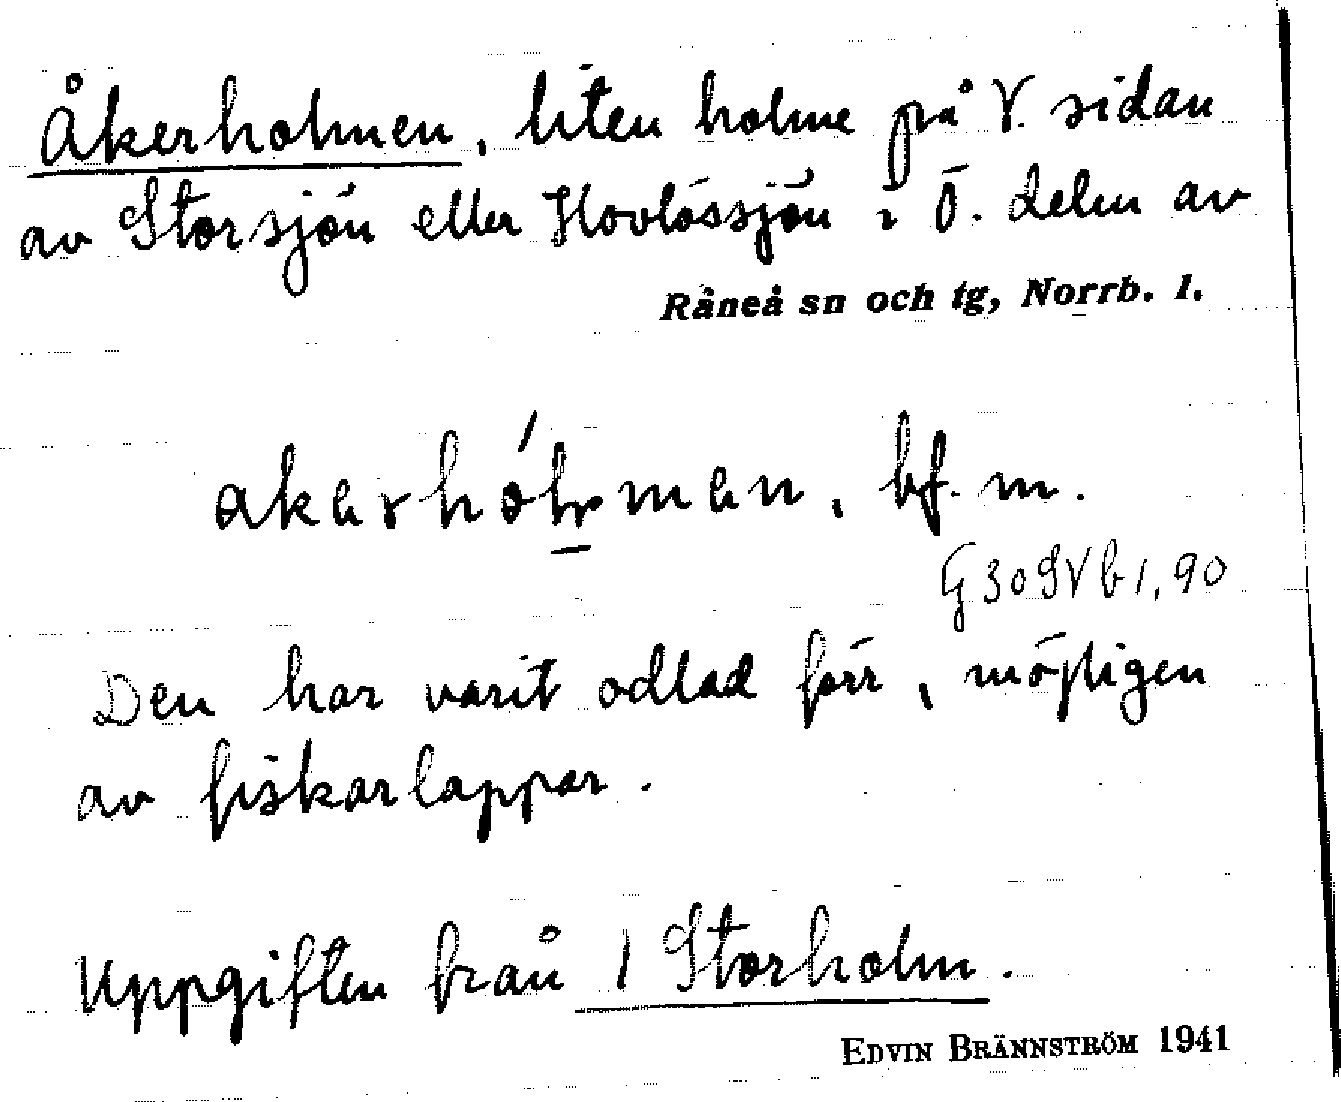 Åkerholmen, liten holme på V. sidan
av Storsjön eller Hovlössjön i Ö. delen av
Råneå sn och tg, Norrb. l.
bf. m.
G 30 SV b 1,90
Den har varit odlad förr, möjligen
av fiskarlappar.
Uppgiften från 1 Storholm.
EDVIN BRÄNNSTRÖM 1941